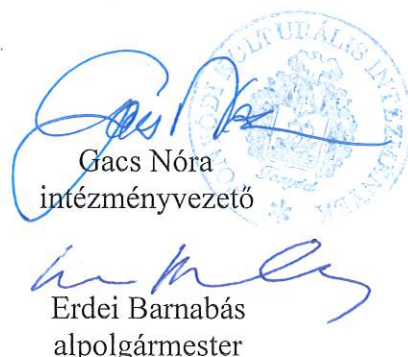 KULTURÁLIS INTÉZMÉNYEK
Gacs Nóra
intézményvezető
Erdei Barnabás
alpolgármester